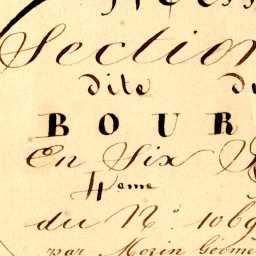 Section
dite du
BOUR
En Six
4eme
du No. 1069
par Morin Géomè